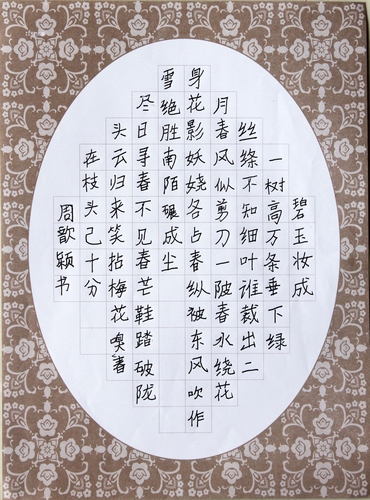 碧玉妆成
一树高万条垂下绿
丝绦不知细叶谁裁出二
月春风似剪刀一陂春水绕花
身花影妖娆各占春纵被东风吹作
雪绝胜南陌碾成尘
尽日寻春不见春芒鞋踏破陇
头云归来笑拈梅花嗅春
在枝头己十分
周歆颖书